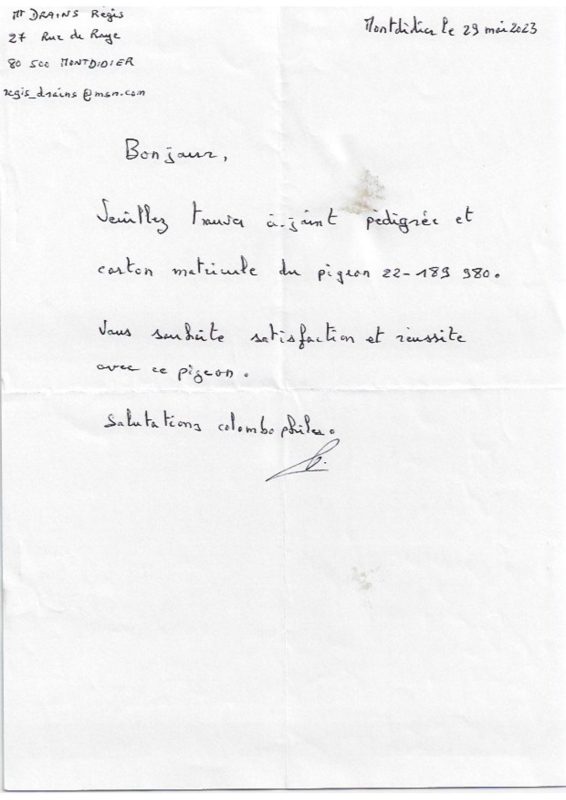 Mr DRAINS Régis
27 Rue de Roye
80 500 MONTDIDIER
regis_drains@msn.com
Montdidier le 29 mai 2023
Bonjour,
Veuillez trouver à-joint pédigrée et
carton matricule du pigeon 22-189 980.
Vous souhaite satisfaction et réussite
avec ce pigeon.
Salutations colombophiles.